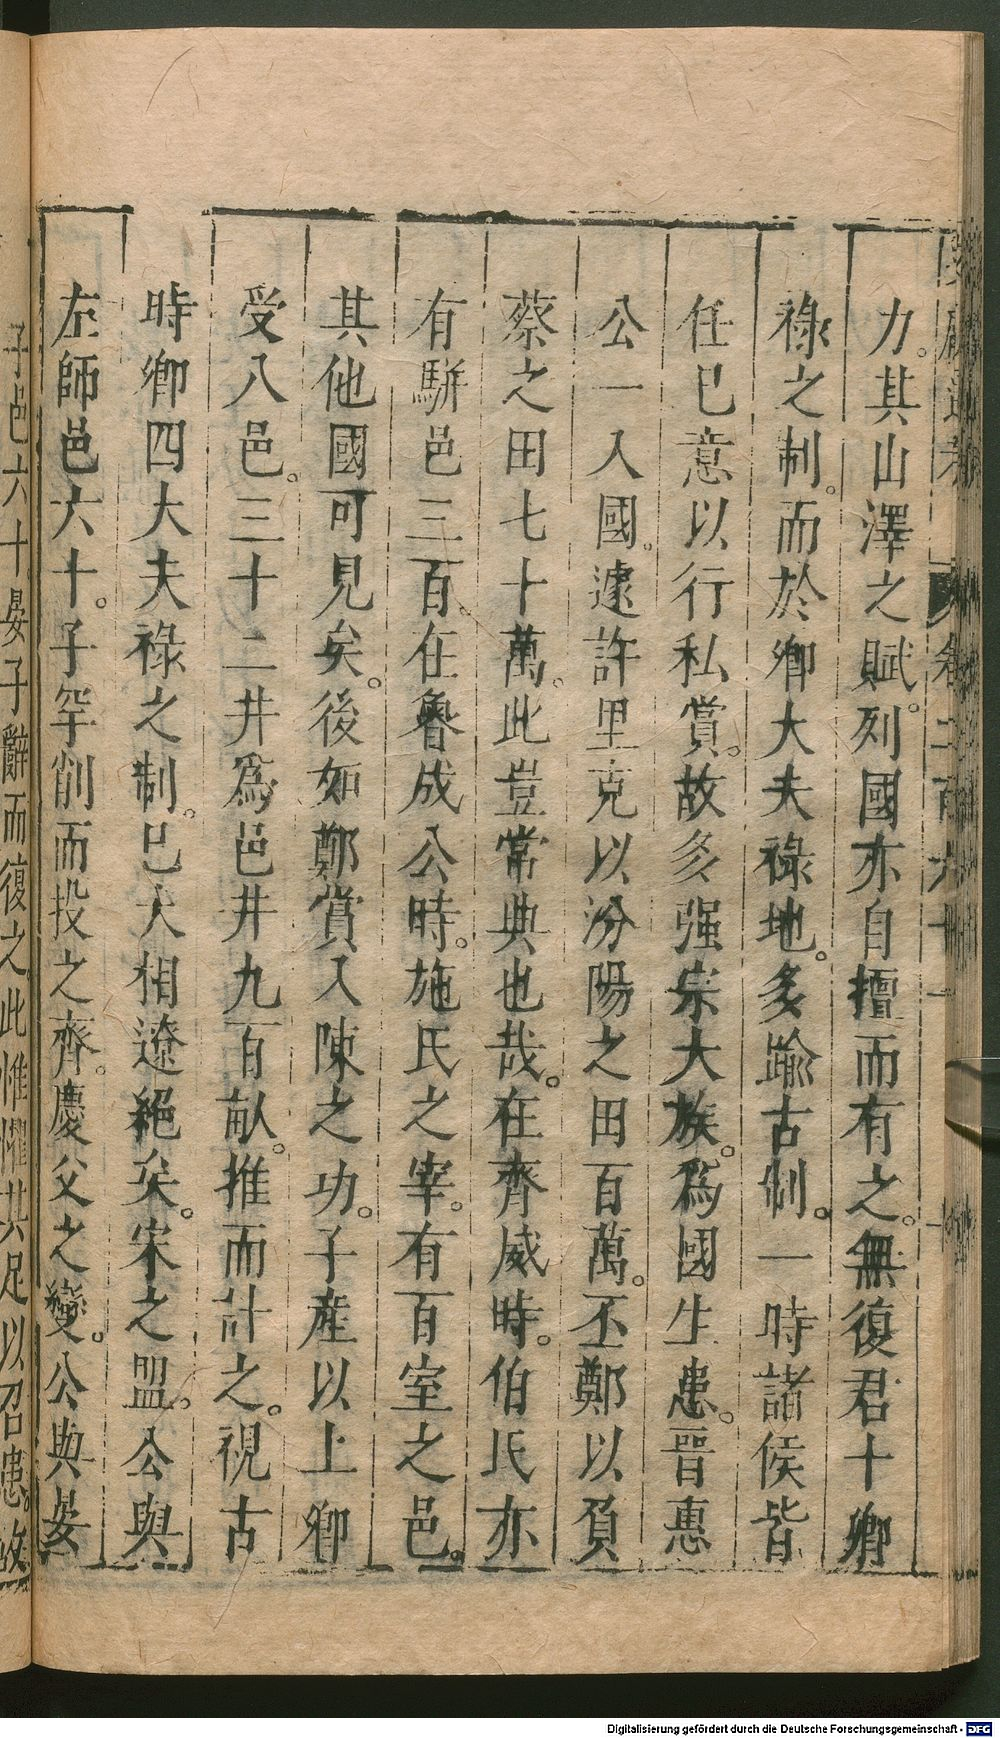 力。其山澤之賦。列國亦自擅而有之。無復君十卿
祿之制。而於卿大夫祿地。多踰古制。一時諸侯皆
任已意以行私賞。故多强宗大族。爲國生患。晉惠
公一入國。遽許里克以汾陽之田百萬。丕鄭以負
蔡之田七十萬。此豈常典也哉。在齊威時。伯氏亦
有駢邑三百。在魯成公時。施氏之宰。有百室之邑。
其他國可見矣。後如鄭賞入陳之功。子產以上卿
受八邑。三十二井爲邑井九百畝。推而計之。視古
時卿四大夫祿之制。已大相遼絕矣。宋之盟。公與
左師邑六十。子罕削而投之。齊。慶父之變。公與晏
子邑六十晏子辭而復之。此惟懼其足以召患。故
Digitalisierung gefördert durch die Deutsche Forschungsgemeinschaft - DFG